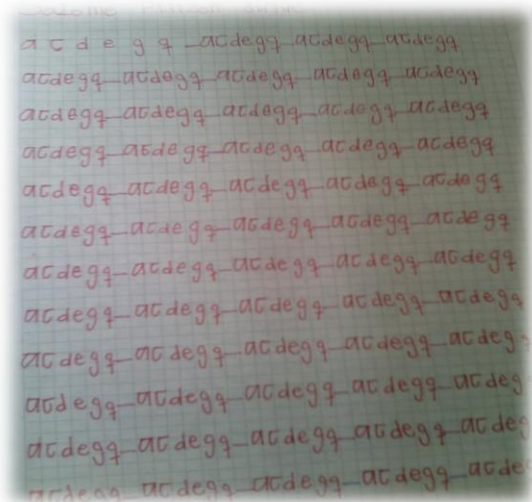 a c d e g q - acdegq-acdegq-acdegq
acdegq-acdegq-acdegq-acdegq-acdegq
acdegq-acdegq-acdegq-acdegq-acdegq
acdegq-acdegq-acdegq-acdegq-acdegq
acdegq-acdegq-acdegq-acdegq-acdegq
acdegq-acdegq-acdegq-acdegq-acdegq
acdegq-acdegq-acdegq-acdegq-acdegq
acdegq-acdegq-acdegq-acdegq-acdegq
acdegq-acdegq-acdegq-acdegq-acdeg
acdegq-acdegq-acdegq-acdegq-acdeg
acdegq-acdegq-acdegq-acdegq-acdeg
acdegq-acdegq-acdegq-acdegq-acde